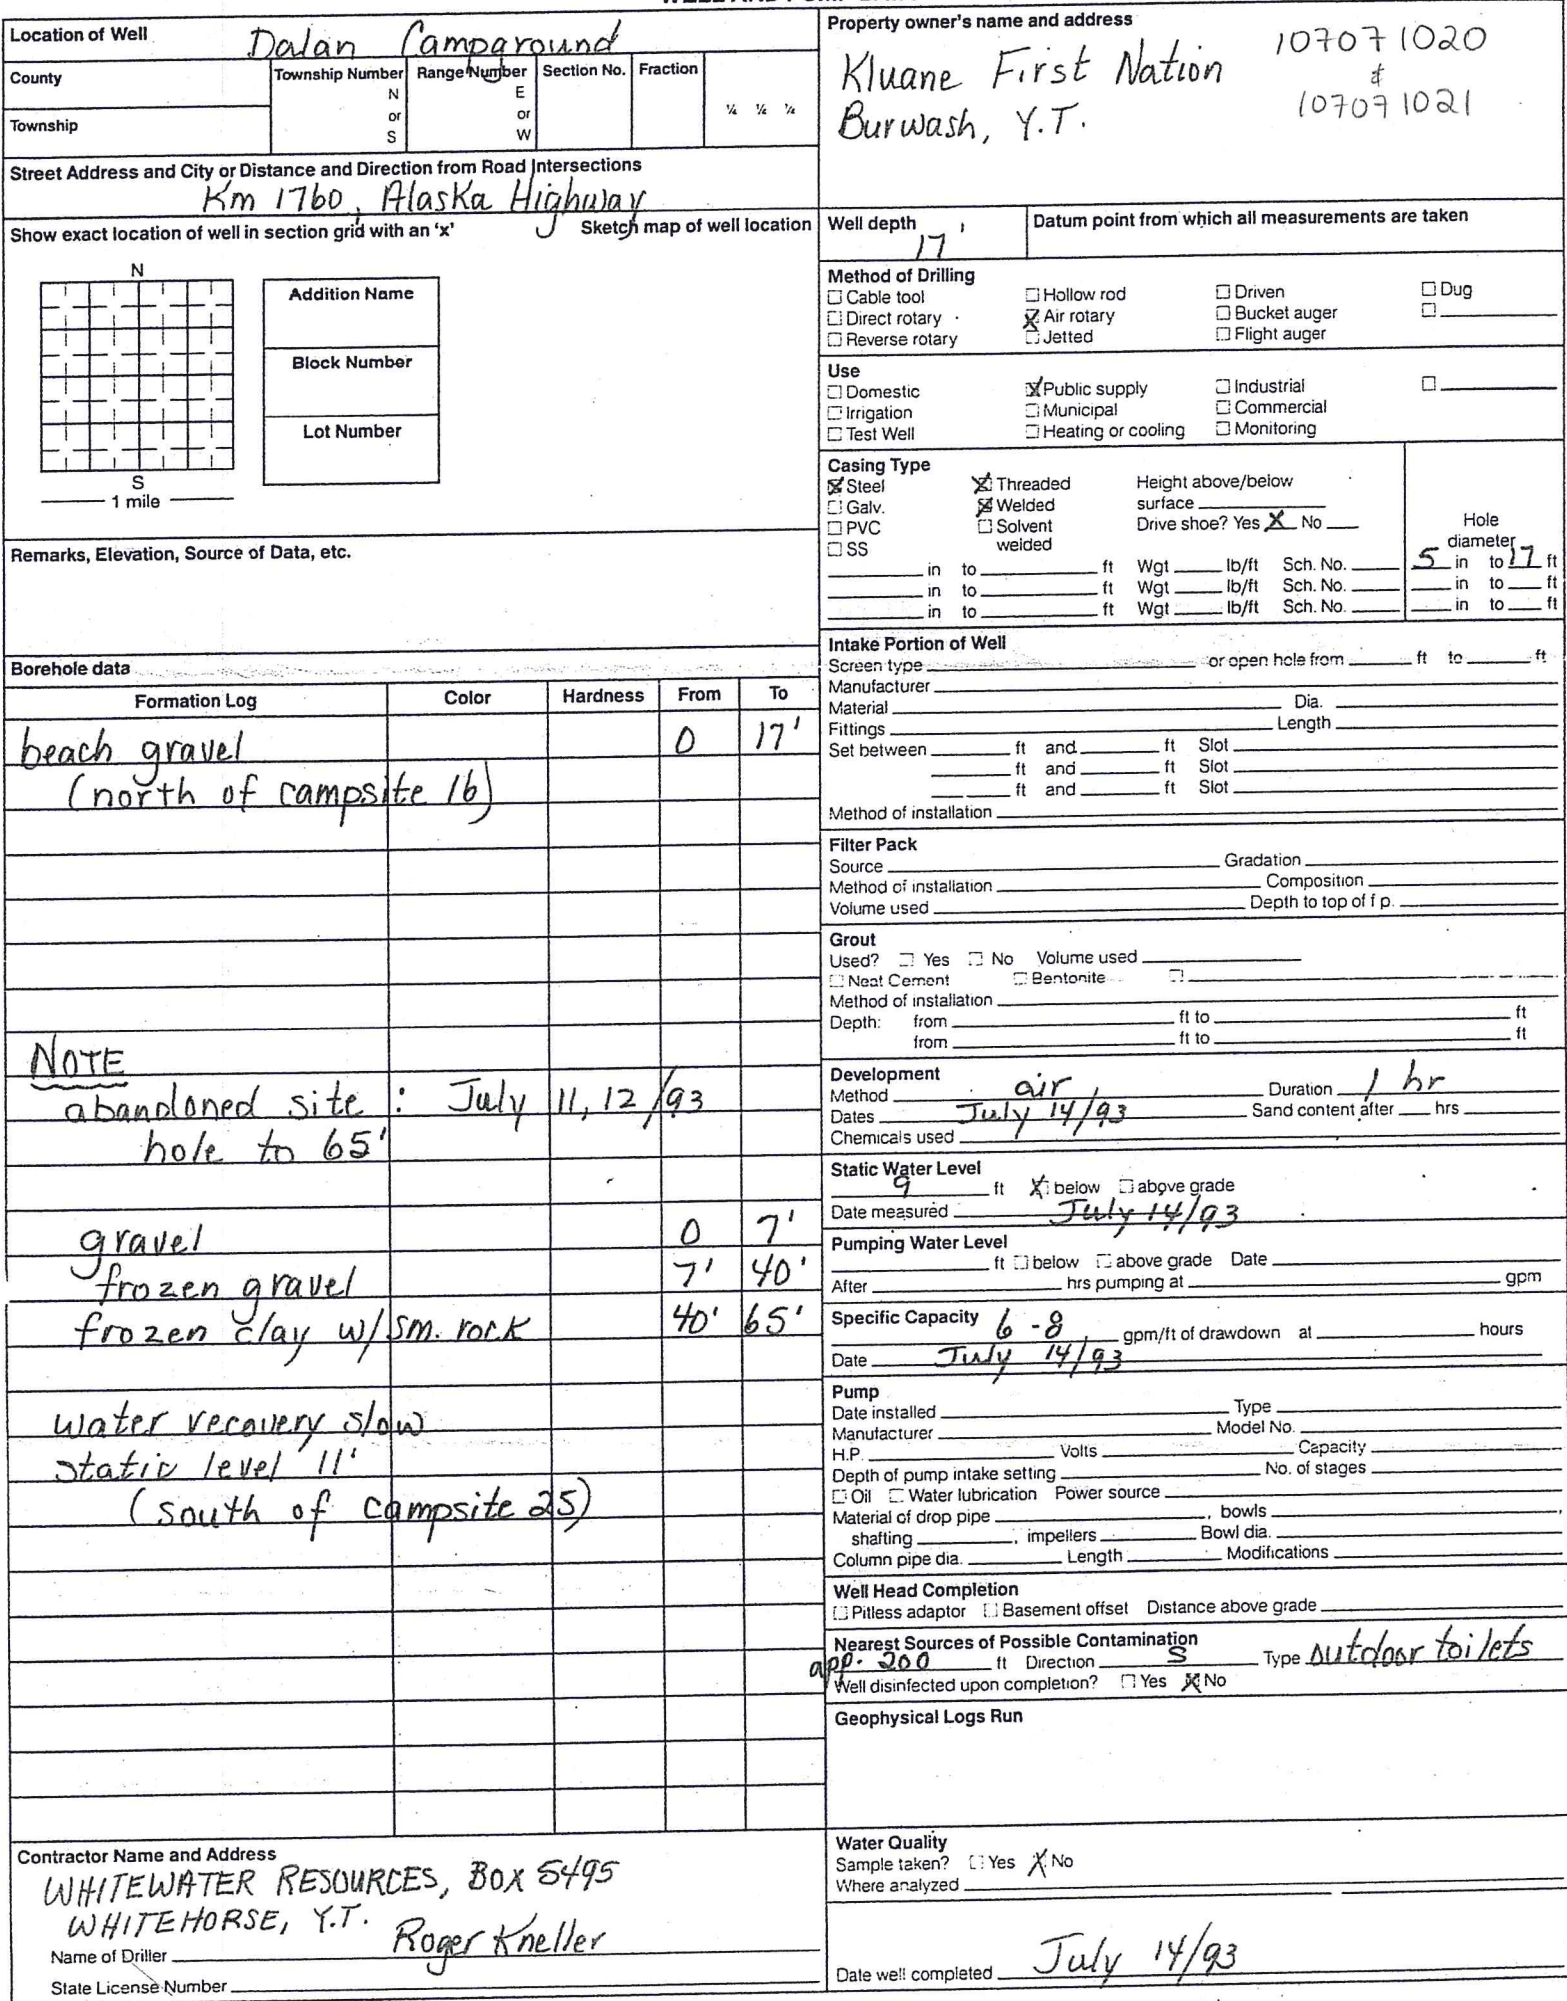 Location of Well Dalan Campground
County
Township Number N or S
Range Number E or W
Section No.
Fraction
¼ ¼ ¼
Township
Street Address and City or Distance and Direction from Road Intersections
Km 1760, Alaska Highway
Show exact location of well in section grid with an 'x' Sketch map of well location
N
S
1 mile
Addition Name
Block Number
Lot Number
Remarks, Elevation, Source of Data, etc.
Borehole data
Formation Log Color Hardness From To
beach gravel 0 17'
(north of campsite 16)
NOTE
abandoned site : July 11, 12/93
hole to 65'
gravel 0 7'
frozen gravel 7' 40'
frozen clay w/ sm. rock 40' 65'
water recovery slow
static level 11'
(south of campsite 25)
Contractor Name and Address
WHITEWATER RESOURCES, BOX 5495
WHITEHORSE, Y.T.
Name of Driller Roger Kneller
State License Number
Property owner's name and address
Kluane First Nation
Burwash, Y.T.
107071020
&
107071021
Well depth 17'
Datum point from which all measurements are taken
Method of Drilling
Cable tool Hollow rod Driven Dug
Direct rotary X Air rotary Bucket auger
Reverse rotary Jetted Flight auger
Use
Domestic X Public supply Industrial
Irrigation Municipal Commercial
Test Well Heating or cooling Monitoring
Casing Type
X Steel X Threaded Height above/below
Galv. X Welded surface
PVC Solvent Drive shoe? Yes X No
SS welded
Hole diameter
in to ft Wgt lb/ft Sch. No. 5 in to 17 ft
in to ft Wgt lb/ft Sch. No. in to ft
in to ft Wgt lb/ft Sch. No. in to ft
Intake Portion of Well
Screen type or open hole from ft to ft
Manufacturer
Material Dia.
Fittings Length
Set between ft and ft Slot
ft and ft Slot
ft and ft Slot
Method of installation
Filter Pack
Source Gradation
Method of installation Composition
Volume used Depth to top of f p.
Grout
Used? Yes No Volume used
Neat Cement Bentonite
Method of installation
Depth: from ft to ft
from ft to ft
Development
Method air Duration 1 hr
Dates July 14/93 Sand content after hrs
Chemicals used
Static Water Level
9 ft X below above grade
Date measured July 14/93
Pumping Water Level
ft below above grade Date
After hrs pumping at gpm
Specific Capacity 6 - 8 gpm/ft of drawdown at hours
Date July 14/93
Pump
Date installed Type
Manufacturer Model No.
H.P. Volts Capacity
Depth of pump intake setting No. of stages
Oil Water lubrication Power source
Material of drop pipe , bowls ,
shafting , impellers Bowl dia.
Column pipe dia. Length Modifications
Well Head Completion
Pitless adaptor Basement offset Distance above grade
Nearest Sources of Possible Contamination
app. 200 ft Direction S Type outdoor toilets
Well disinfected upon completion? Yes X No
Geophysical Logs Run
Water Quality
Sample taken? Yes X No
Where analyzed
Date well completed July 14/93